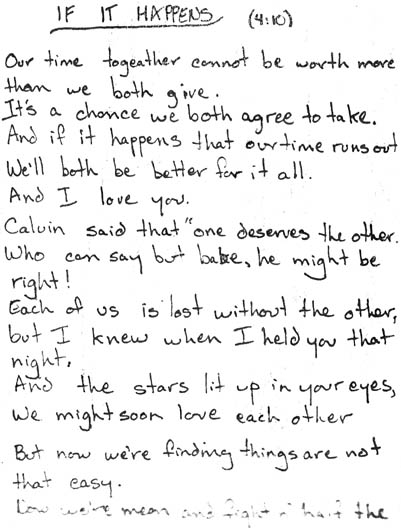 IF IT HAPPENS (4:10)
Our time togeather cannot be worth more
than we both give.
It's a chance we both agree to take.
And if it happens that our time runs out
We'll both be better for it all.
And I love you.
Calvin said that "one deserves the other.
Who can say but babe, he might be
right!
Each of us is lost without the other,
but I knew when I held you that
night,
And the stars lit up in your eyes,
We might soon love each other
But now we're finding things are not
that easy.
we're mean and fight half the